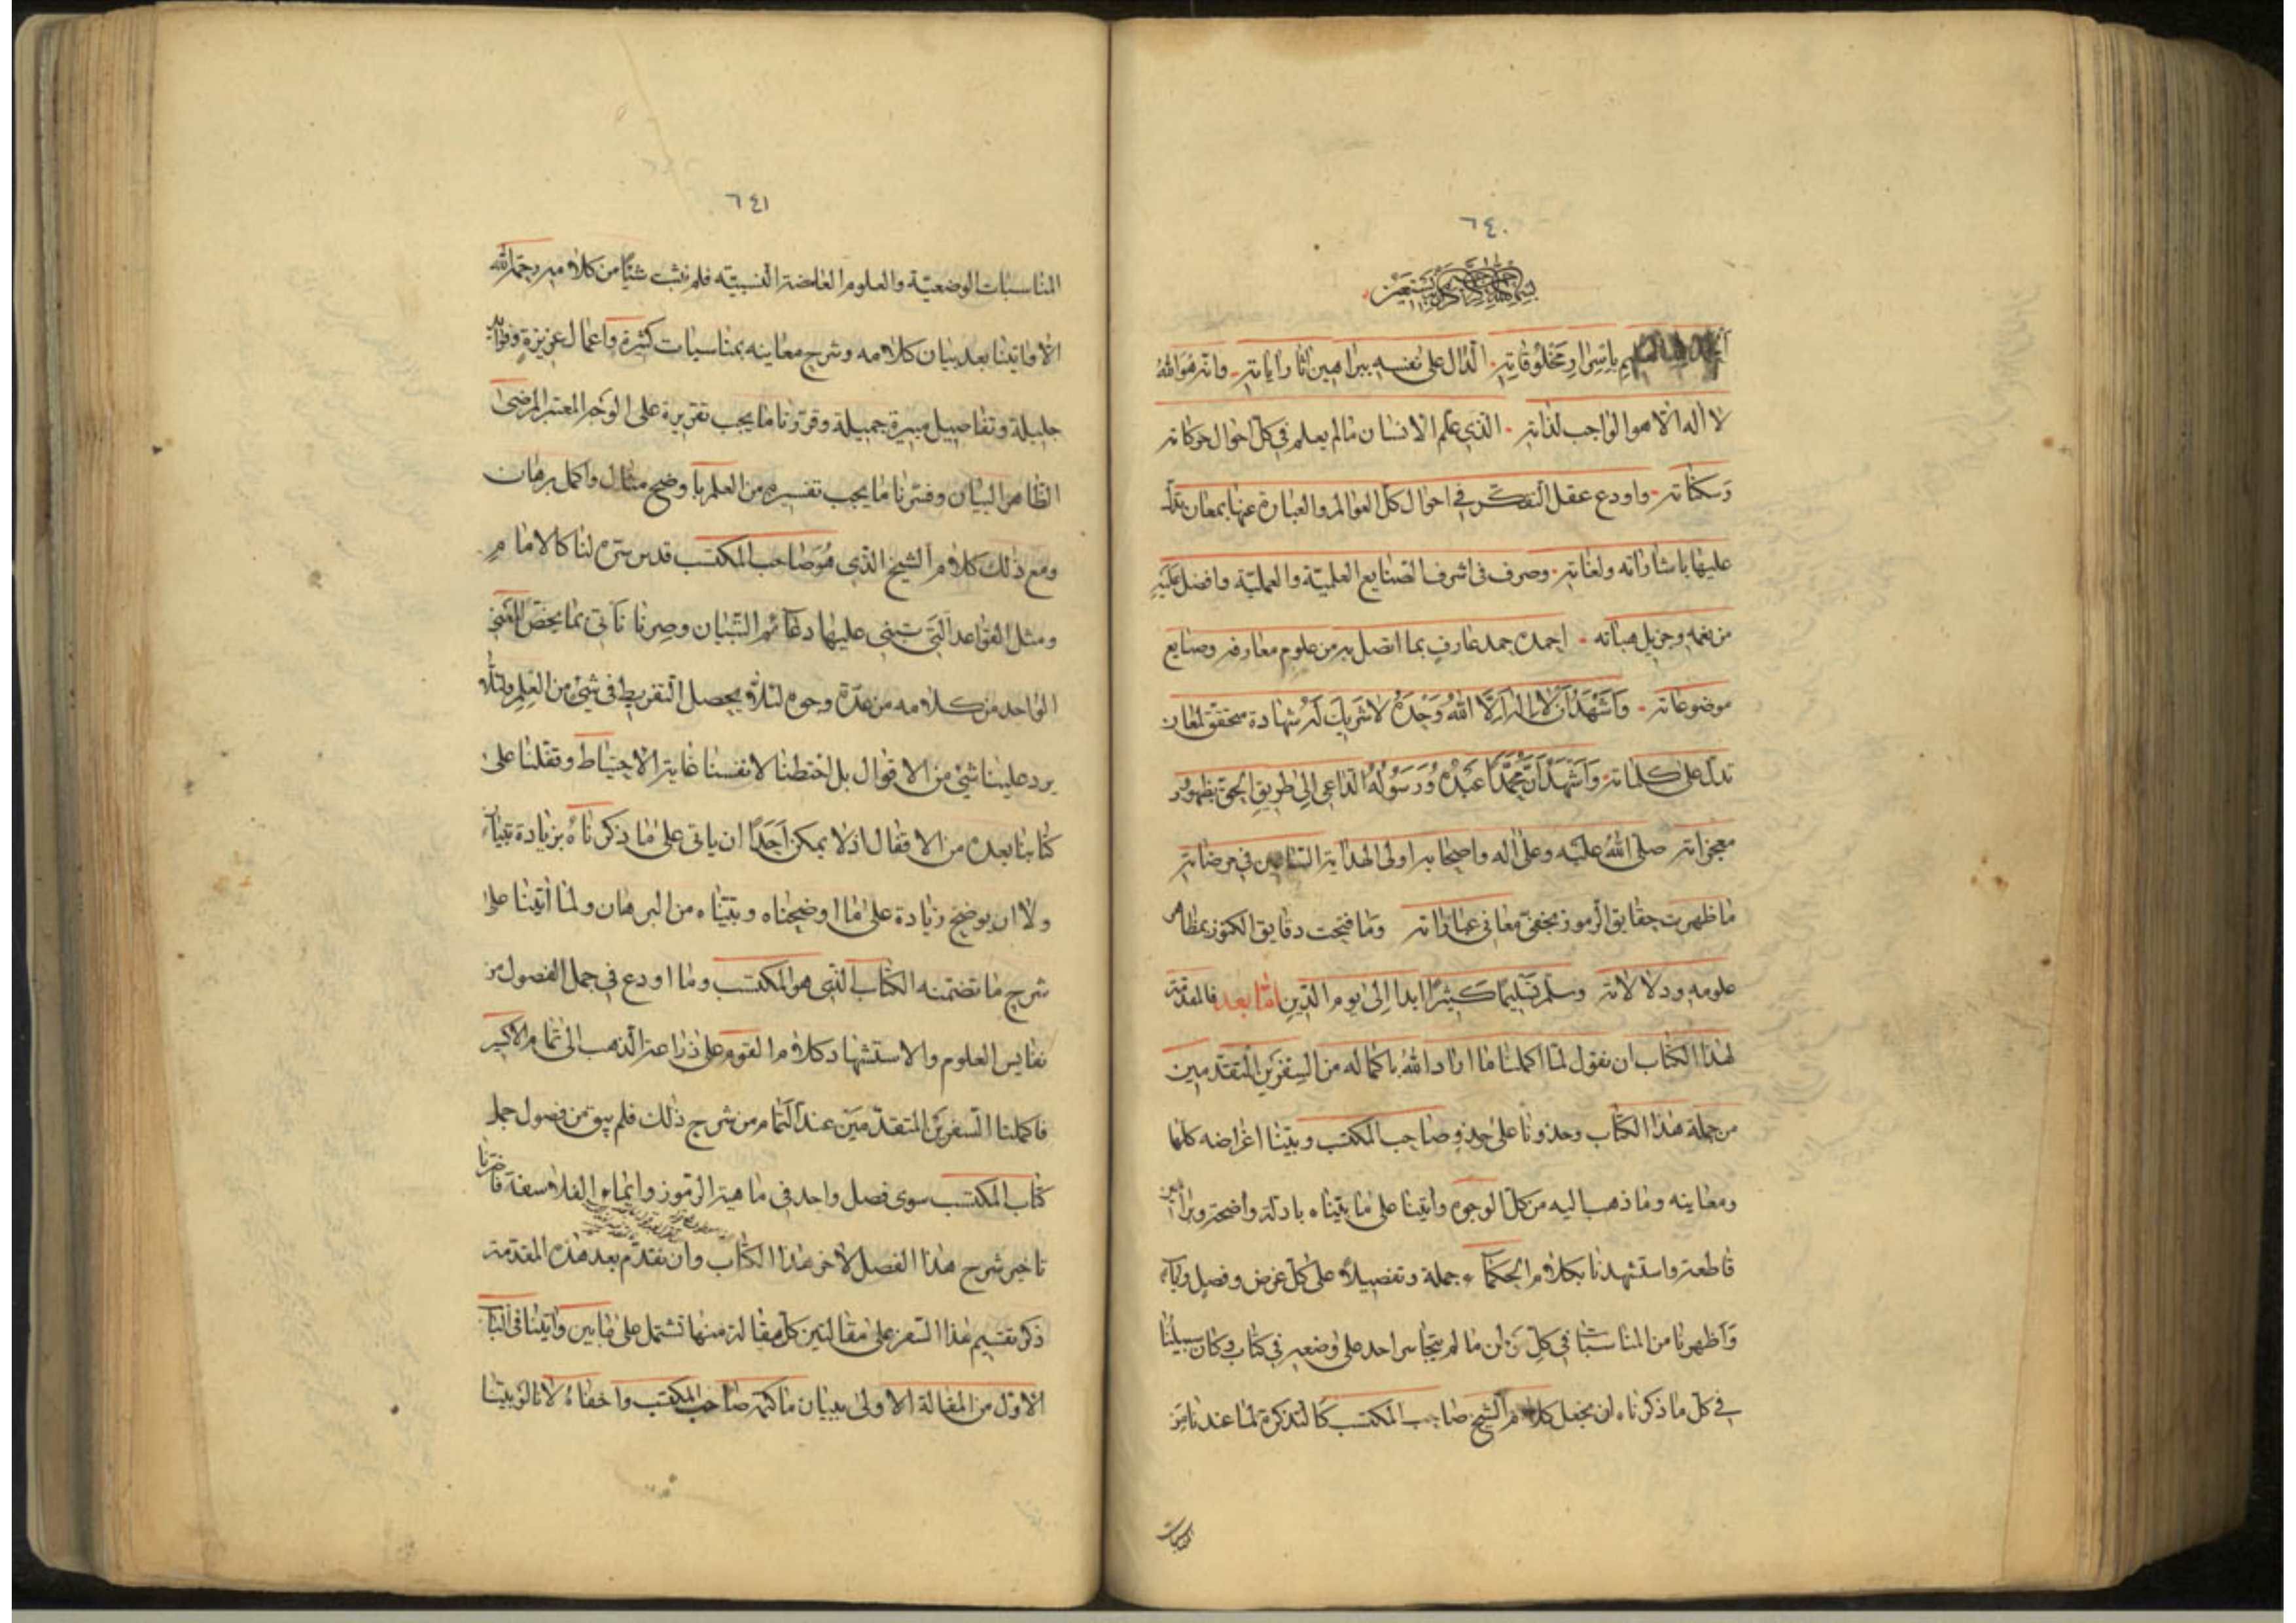 ٦٤٠
بسم الله الرحمن الرحيم وبه نستعين
باسرار مخلوقاته الدال على نفسه ببراهين اثار اياته وانه هو الله
لا اله الا هو الواجب لذاته الذي علم الانسان ما لم يعلم في كل احوال حركاته
وسكناته واودع عقل التفكر في احوال كل العوالم والعبارة عنها بمعان تدل
عليها باشاراته ولغاته وصرف في اشرف الصنايع العلمية والعملية وافضل عليه
من نعمه وجزيل هباته احمده حمد عارف بما اتصل به من علوم معارفه وصنايع
موضوعاته وَاَشْهَدُ اَنْ لا اله اِلَّا اللهُ وَحْدَهُ لا شريك له شهادة متحقق لمعان
تدل على كلماته وَاَشْهَدُ اَنَّ مُحَمَّدًا عَبْدُهُ وَرَسُولُهُ الداعي اِلى طريق الحق بظهور
معجزاته صلى الله عليه وعلى اله واصحابه اولى الهداية في مرضاته
ما ظهرت حقايق الرموز بخفي معاني عباراته وما فتحت دقايق الكنوز بمظاهر
علومه ودلالاته وسلم تسليما كثيرا ابدا الى يوم الدين اما بعد فالمقدمة
لهذا الكتاب ان نقول لما اكملنا ما اراد الله باكماله من السفرين المتقدمين
من جملة هذا الكتاب وحذونا على حذو صاحب المكتسب وبيّنا اغراضه كلها
ومعاينه وما ذهب اليه من كل الوجوه واتينا على ما بيّناه بادلة واضحة وبراهين
قاطعة واستشهدنا بكلام الحكماء جملة وتفصيلا على كل غرض وفصل وباب
واظهرنا من المناسبات في كل فن ما لم يتجاسر احد على وضعه في كتاب وكان سبيلنا
في كل ما ذكرناه ان نجعل كلام الشيخ صاحب المكتسب كالتذكرة لما عندنا من
المناسبات
٦٤١
المناسبات الوضعية والعلوم الغامضة النسبيته فلم نثبت شيئا من كلامه رحمه الله
الا واتينا بعد بيان كلامه وشرح معاينه بمناسبات كثيرة واعمال عزيزة وفوايد
جليلة وتفاصيل جميلة وقررنا ما يجب تقريره على الوجه المعتبر المرضى
الظاهر البيان وفسرنا ما يجب تفسيره من العلم باوضح مثال واكمل برهان
ومع ذلك كلام الشيخ الذي هو صاحب المكتسب قدس سره لنا كالامام
ومثل القواعد التي تبنى عليها دعائم التبيان وصرنا ناتى بما يخص المعنى
الواحد من كلامه من عدة وجوه لئلا يحصل التفريط في شئ من العلم ولئلا
يرد علينا شئ من الاقوال بل احتطنا لانفسنا غاية الاحتياط وقفلنا على
كتابنا بعده من الاقفال اذ لا يمكن اَحَدًا ان ياتى على ما ذكرناه بزيادة تبيان
ولا ان يوضح زيادة على ما اوضحناه وبيّناه من البرهان ولما اتينا على
شرح ما تضمنه الكتاب الذي هو المكتسب وما اودع في جمل الفصول من
نفايس العلوم والاستشهاد كلام القوم على زراعة الذهب الى تمام الاكسير
فاكملنا السفرين المتقدمين عند التمام من شرح ذلك فلم يبق من فصول جمل
كتاب المكتسب سوى فصل واحد في ماهية الرموز وايماء الفلاسفة فاخترنا
تاخير شرح هذا الفصل لاخر هذا الكتاب وان نقدم بعد هذه المقدمة
ذكر تقسيم هذا السفر على مقالتين كل مقالة منها تشتمل على بابين واتينا في الباب
الاول من المقالة الاولى ببيان ما كتمه صاحب المكتسب واخفاه لانا لو بيّنا